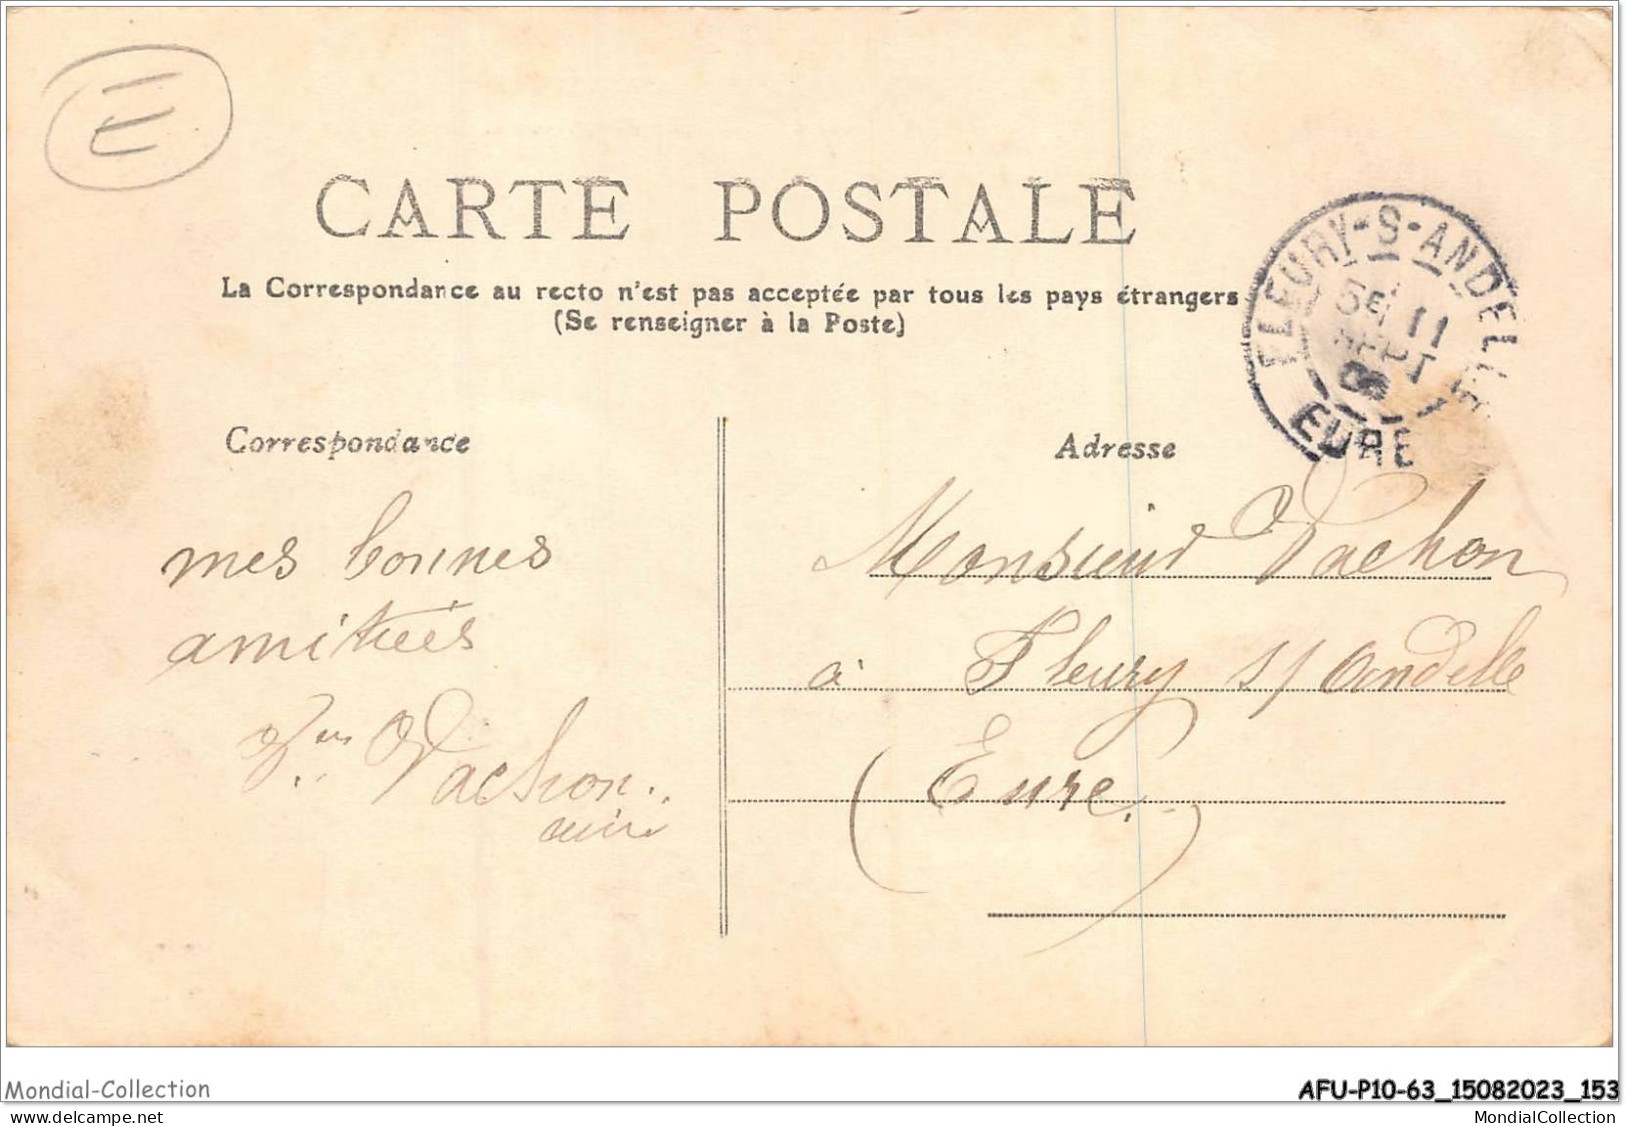 E
CARTE POSTALE
La Correspondance au recto n'est pas acceptée par tous les pays étrangers
(Se renseigner à la Poste)
FLEURY-S-ANDELLE
5E 11
SEPT
EURE
Correspondance
Adresse
mes bonnes
amitiés
Vachon
Monsieur Vachon
à Fleury s/ Andelle
(Eure)
Mondial-Collection
AFU-P10-63_15082023_153
www.delcampe.net
MondialCollection